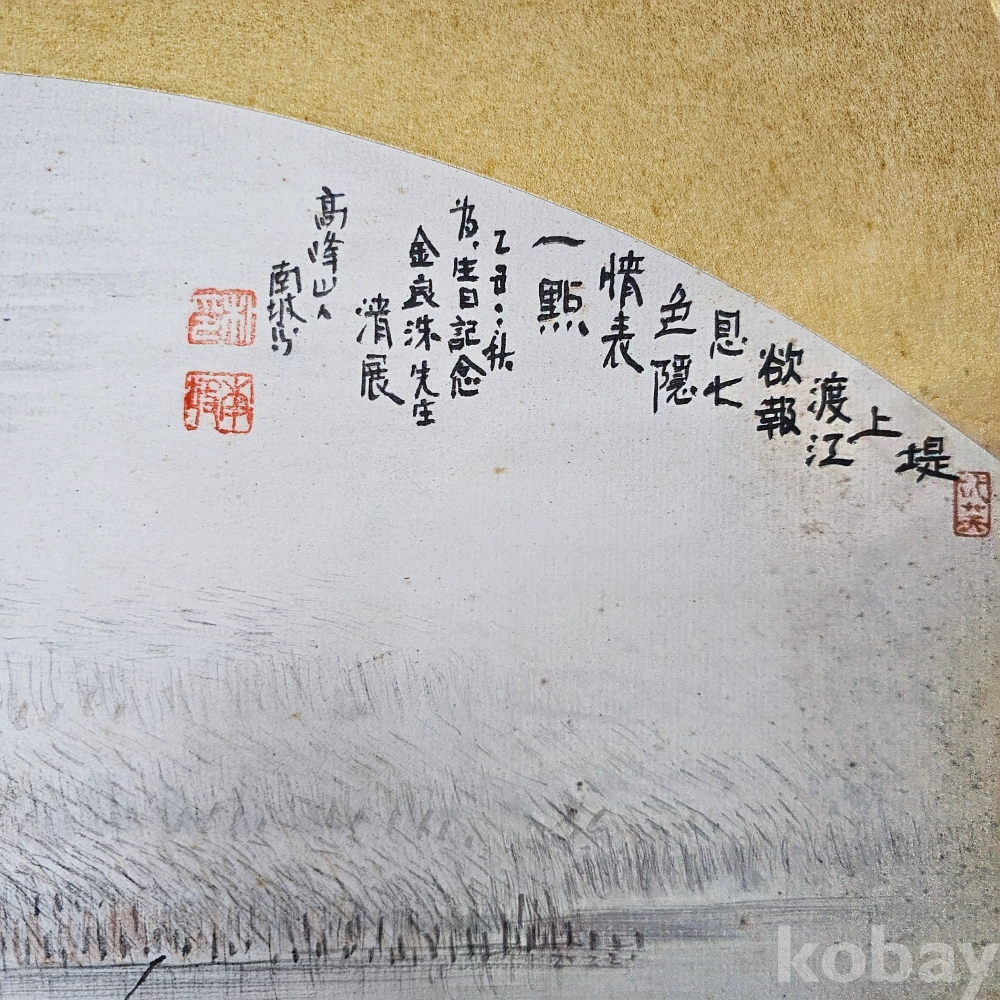 堤
上
渡江
欲報
息七
色隱
情表
一點
乙丑:秋
為、生日記念
金良洙先生
清展
高峰山人
南坡
kobay